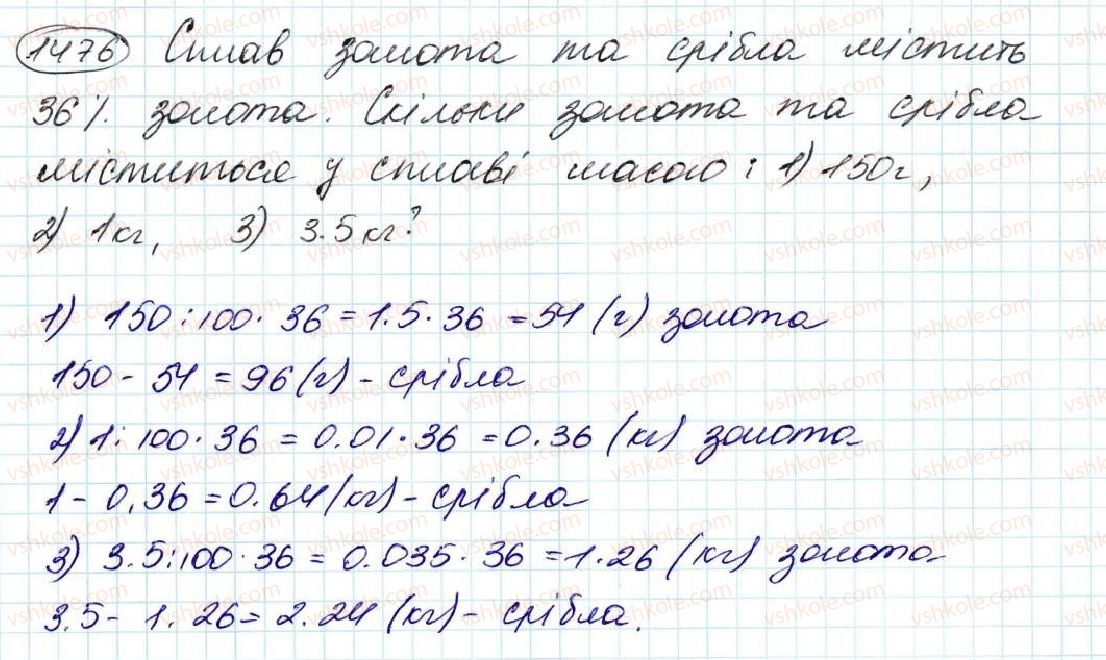 1476 Сплав золота та срібла містить
36%. золота. Скільки золота та срібла
міститься у сплаві масою: 1) 150г,
2) 1кг, 3) 3.5кг?
1) 150:100·36=1.5·36=54 (г) золота
150-54=96(г)-срібла
2) 1:100·36=0.01·36=0.36 (кг) золота
1-0,36=0.64(кг)-срібла
3) 3.5:100·36=0.035·36=1.26 (кг) золота
3.5-1.26=2.24 (кг)-срібла.